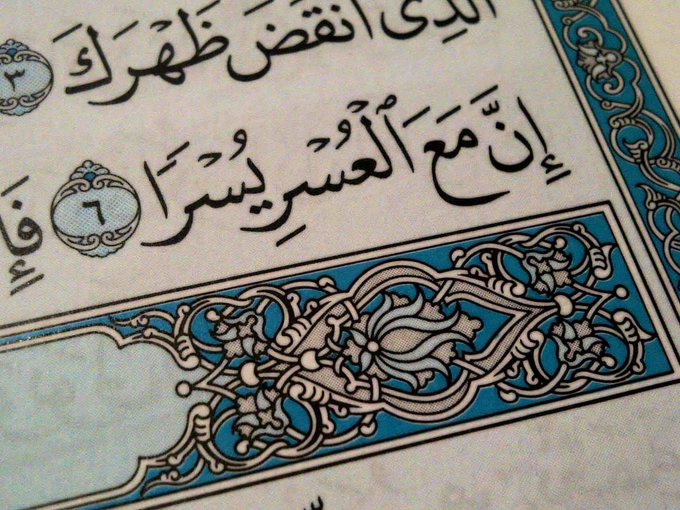 الَّذِىٓ أَنقَضَ ظَهْرَكَ ٣
إِنَّ مَعَ ٱلْعُسْرِ يُسْرًا ٦